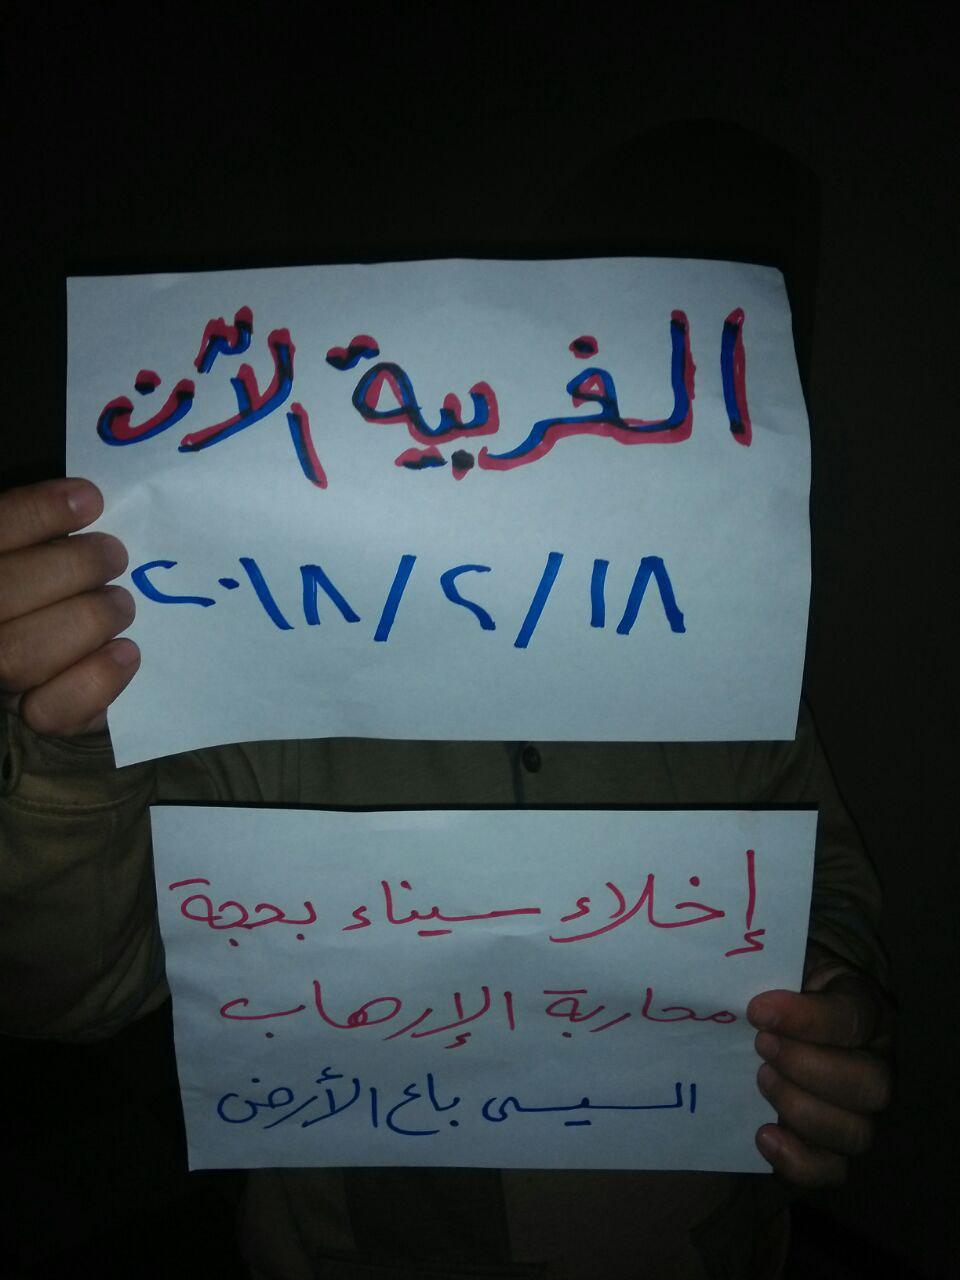 الغربية الآن
٢٠١٨/٢/١٨
إخلاء سيناء بحجة
محاربة الإرهاب
السيسى باع الأرض